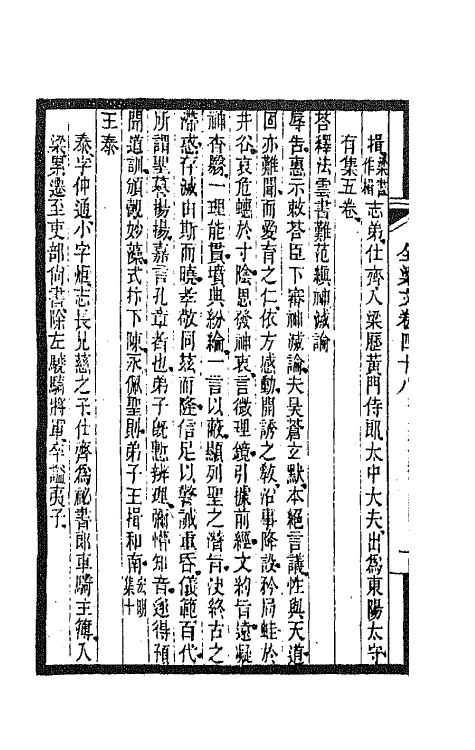 揖梁書作楫志弟仕齊入梁歷黃門侍郎太中大夫出爲東陽太守
有集五卷
荅釋法雲書難范縝神滅論
辱告惠示敕荅臣下審神滅論夫昊蒼玄默本絕言議性與天道
固亦難聞而愛育之仁依方感動開誘之敎沿事降設矜局蛙於
井谷哀危蟪於寸陰思發神衷言微理鏡引據前經文約旨遠凝
神杳翳一理能貫墳典紛綸一言以蔽顯列聖之潛旨决終古之
滯惑存滅由斯而曉孝敬同茲而隆信足以警誡重昏儀範百代
所謂聖謨揚揚嘉言孔章者也弟子旣慙辨理彌懵知音遂得預
聞道訓頒覿妙藻式抃下陳永佩聖則弟子王揖和南弘明集十
王泰
泰字仲通小字烜志長兄慈之子仕齊爲祕書郎車騎主簿入
梁累遷至吏部尙書除左驍騎將軍卒諡夷子
全梁文卷四十八